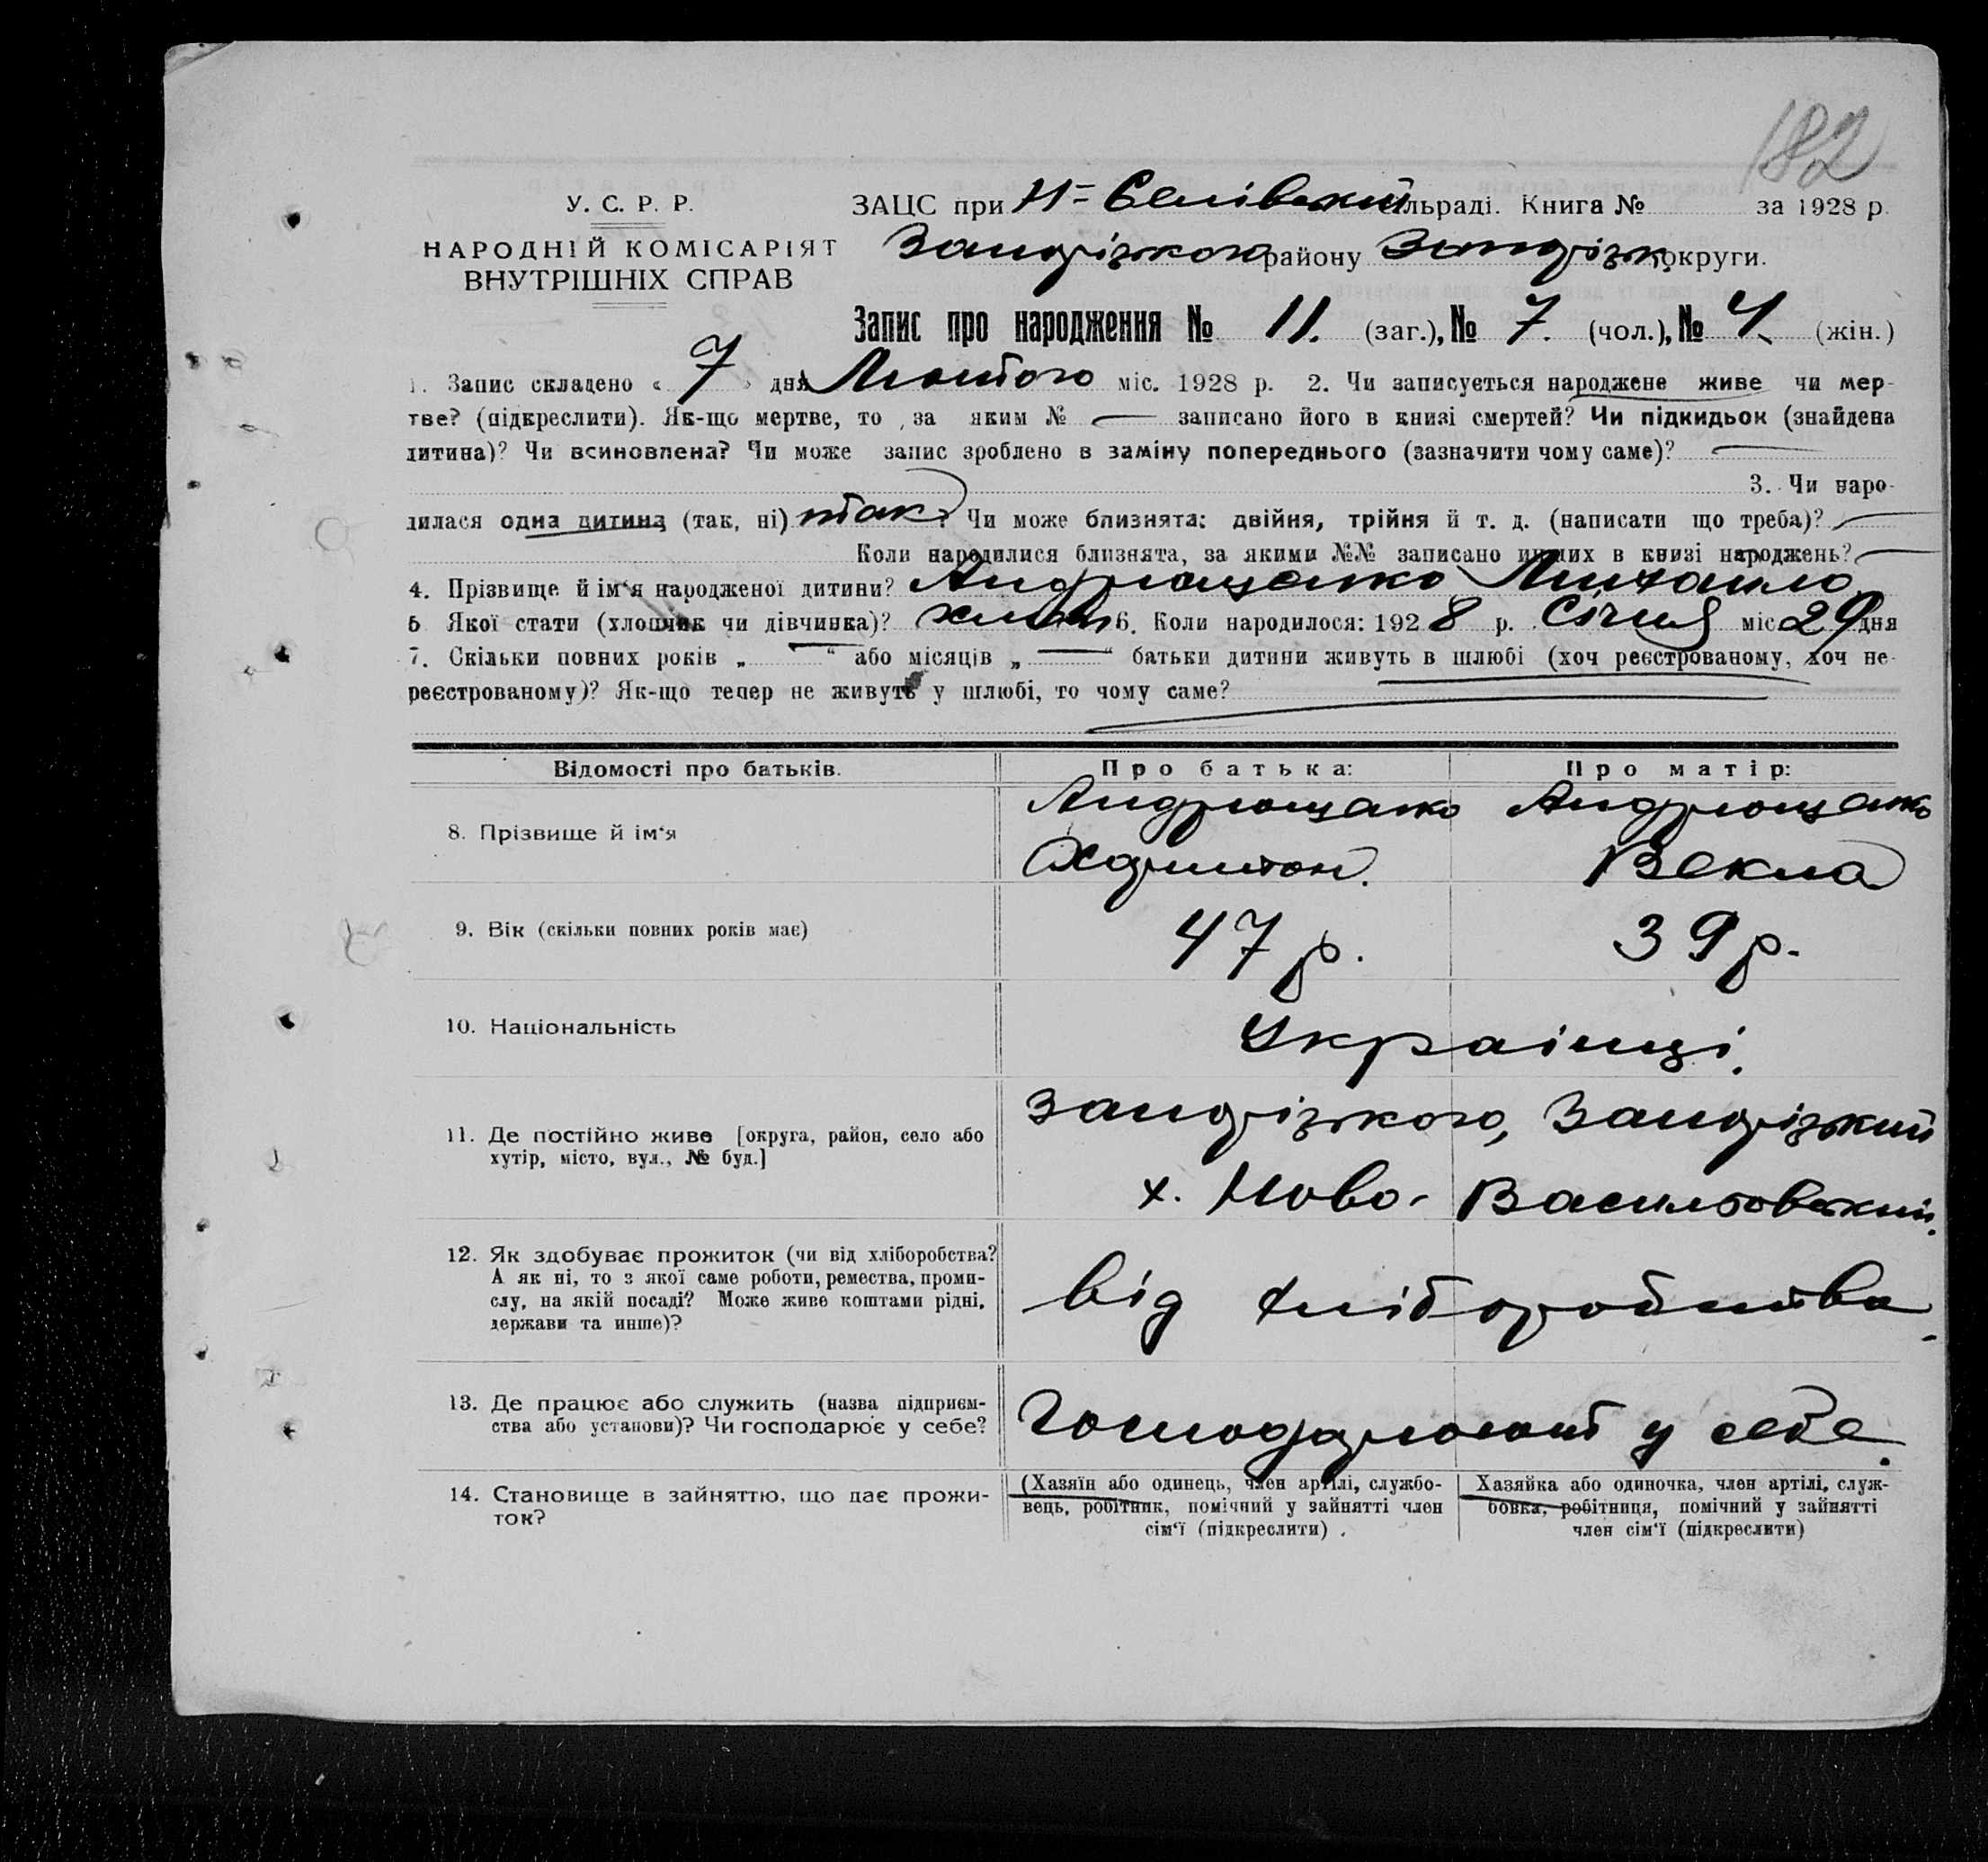 182
У. С. Р. Р.
НАРОДНІЙ КОМІСАРІЯТ
ВНУТРІШНІХ СПРАВ
ЗАЦС при Н-Селівській сільраді. Книга № за 1928 р.
Запорізького району Запорізьк. округи.
Запис про народження № 11. (заг.), № 7. (чол.), № 4. (жін.)
1. Запис складено « 7 » дня Лютого міс. 1928 р. 2. Чи записується народжене живе чи мер-
тве? (підкреслити). Як-що мертве, то за яким № — записано його в книзі смертей? Чи підкидьок (знайдена
дитина)? Чи всиновлена? Чи може запис зроблено в заміну попереднього (зазначити чому саме)? —
3. Чи наро-
дилася одна дитина (так, ні) так? Чи може близнята: двійня, трійня й т. д. (написати що треба)? —
Коли народилися близнята, за якими №№ записано инших в книзі народжень? —
4. Прізвище й ім'я народженої дитини? Андрющенко Михайло
5 Якої стати (хлопчик чи дівчинка)? хлопч 6. Коли народилося: 1928 р. Січня міс 29 дня
7. Скільки повних років „ — “ або місяців „ — “ батьки дитини живуть в шлюбі (хоч реєстрованому, хоч не-
реєстрованому)? Як-що тепер не живуть у шлюбі, то чому саме?
Відомості про батьків. Про батька: Про матір:
8. Прізвище й ім'я Андрющенко Харитон. Андрющенко Векла
9. Вік (скільки повних років має) 47 р. 39 р.
10. Національність Українці.
11. Де постійно живе [округа, район, село або
хутір, місто, вул., № буд.]
Запорізького, Запорізький
х. Ново-Васильовський.
12. Як здобуває прожиток (чи від хліборобства?
А як ні, то з якої саме роботи, ремества, проми-
слу, на якій посаді? Може живе коштами рідні,
держави та инше)?
від хліборобства.
13. Де працює або служить (назва підприєм-
ства або установи)? Чи господарює у себе?
Господарюют у себе.
14. Становище в зайняттю, що дає прожи-
ток?
(Хазяїн або одинець, член артілі, службо-
вець, робітник, помічний у зайнятті член
сім'ї (підкреслити).
Хазяйка або одиночка, член артілі, служ-
бовка, робітниця, помічний у зайнятті
член сім'ї (підкреслити)